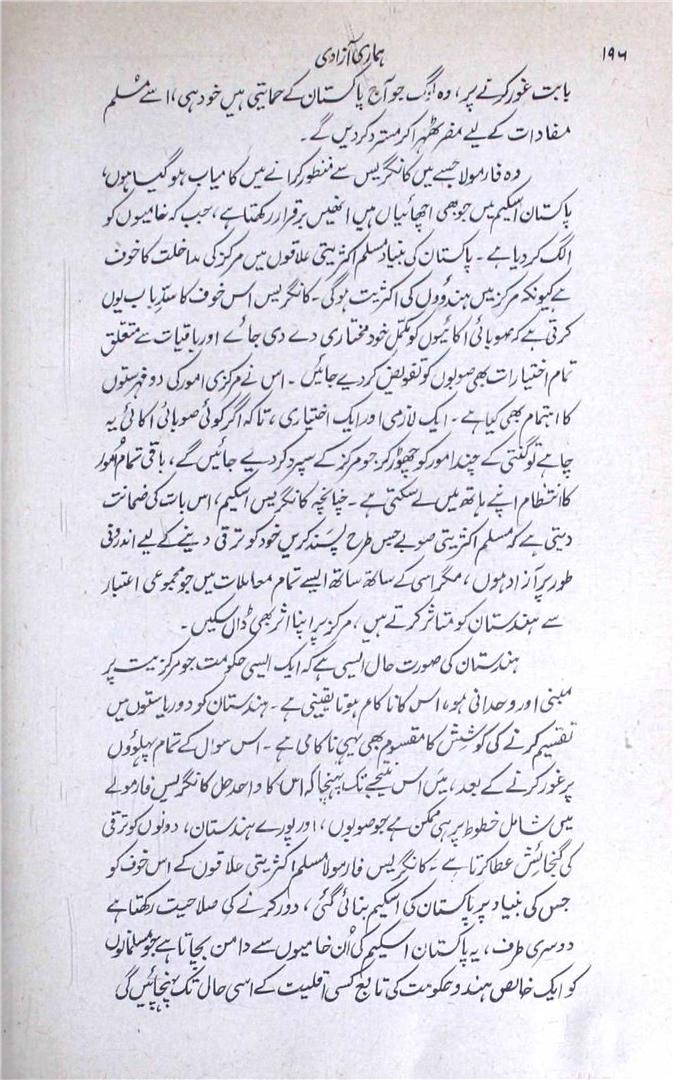 ۱۹۶
ہماری آزادی
بابت غور کرنے پر، وہ لوگ جو آج پاکستان کے حمایتی ہیں خود ہی، اسے مسلم
مفادات کے لیے مضر ٹھہرا کر مسترد کر دیں گے۔
وہ فارمولا جسے میں کانگریس سے منظور کرانے میں کامیاب ہو گیا ہوں،
پاکستان اسکیم میں جو بھی اچھائیاں ہیں انھیں برقرار رکھتا ہے، جب کہ خامیوں کو
الگ کر دیا ہے۔ پاکستان کی بنیاد مسلم اکثریتی علاقوں میں مرکز کی مداخلت کا خوف
ہے کیونکہ مرکز میں ہندوؤں کی اکثریت ہوگی۔ کانگریس اس خوف کا سدّباب یوں
کرتی ہے کہ صوبائی اکائیوں کو مکمل خود مختاری دے دی جائے اور باقیات سے متعلّق
تمام اختیارات بھی صوبوں کو تفویض کر دیے جائیں۔ اس نے مرکزی امور کی دو فہرستوں
کا اہتمام بھی کیا ہے۔ ایک لازمی اور ایک اختیاری، تاکہ اگر کوئی صوبائی اکائی یہ
چاہے تو گنتی کے چند امور کو چھوڑ کر جو مرکز کے سپرد کر دیے جائیں گے، باقی تمام امور
کا انتظام اپنے ہاتھ میں لے سکتی ہے۔ چنانچہ کانگریس اسکیم، اس بات کی ضمانت
دیتی ہے کہ مسلم اکثریتی صوبے جس طرح پسند کریں خود کو ترقی دینے کے لیے اندرونی
طور پر آزاد ہوں، مگر اسی کے ساتھ ساتھ ایسے تمام معاملات میں جو مجموعی اعتبار
سے ہندستان کو متاثر کرتے ہیں، مرکز پر اپنا اثر بھی ڈال سکیں۔
ہندستان کی صورت حال ایسی ہے کہ ایک ایسی حکومت جو مرکزیت پر
مبنی اور وحدانی ہو، اس کا ناکام ہونا یقینی ہے۔ ہندستان کو دو ریاستوں میں
تقسیم کرنے کی کوشش کا مقسوم بھی یہی ناکامی ہے۔ اس سوال کے تمام پہلوؤں
پر غور کرنے کے بعد، میں اس نتیجے تک پہنچا کہ اس کا واحد حل کانگریس فارمولے
میں شامل خطوط پر ہی ممکن ہے جو صوبوں، اور پورے ہندستان، دونوں کو ترقی
کی گنجائش عطا کرتا ہے۔ کانگریس فارمولا مسلم اکثریتی علاقوں کے اس خوف کو
جس کی بنیاد پر پاکستان کی اسکیم بنائی گئی، دور کرنے کی صلاحیت رکھتا ہے
دوسری طرف، یہ پاکستان اسکیم کی اُن خامیوں سے دامن بچاتا ہے جو مسلمانوں
کو ایک خالص ہندو حکومت کی تابع کسی اقلیت کے اسی حال تک پہنچائیں گی